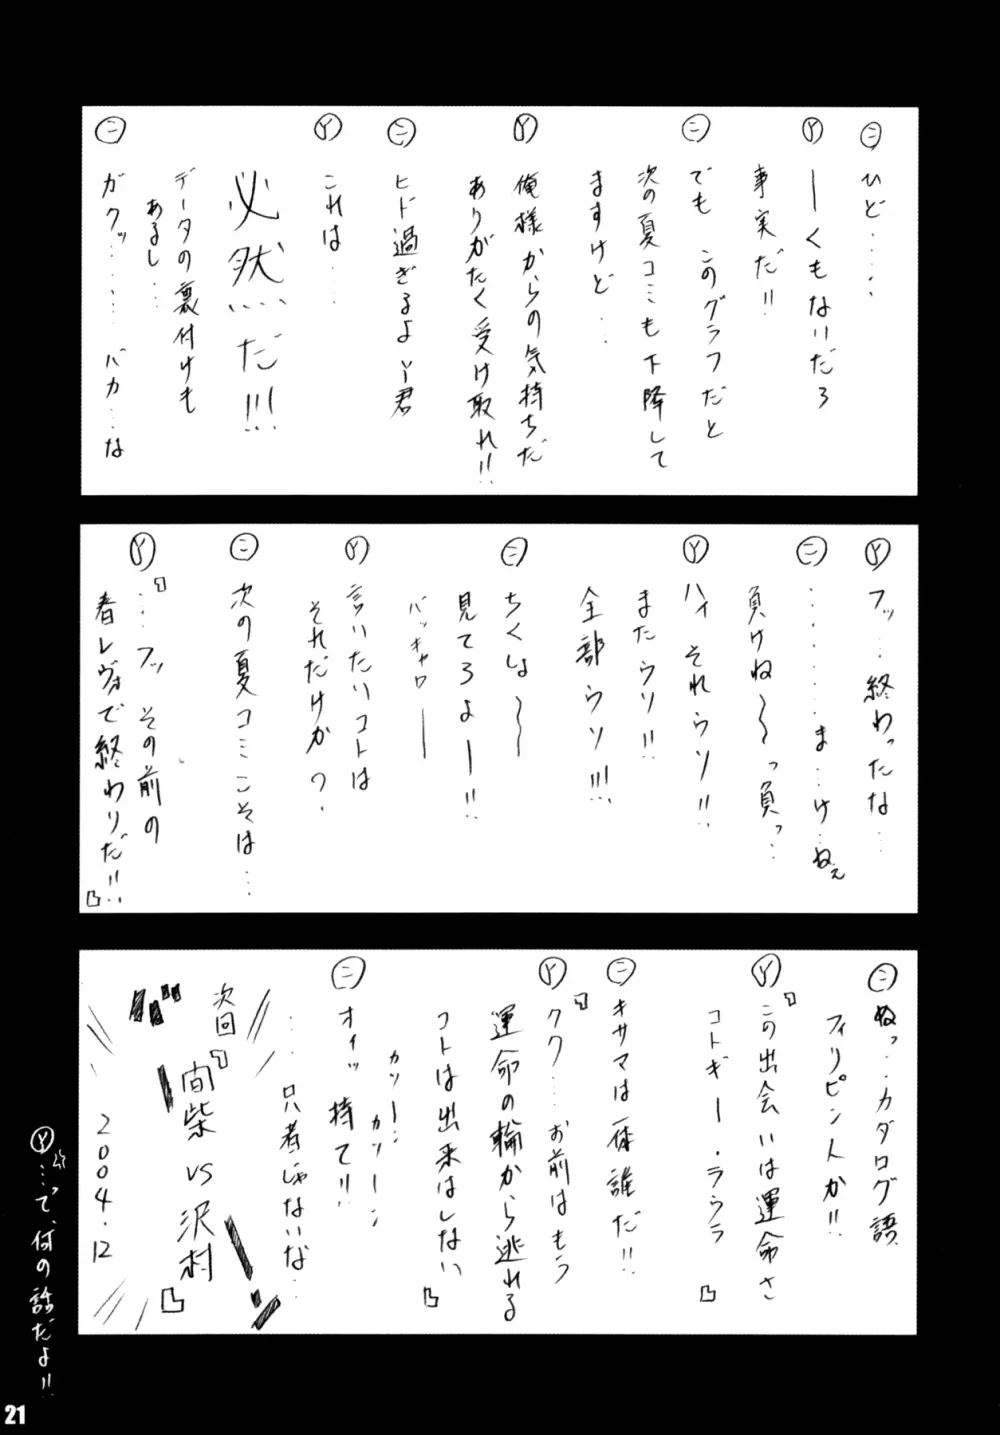 ㊁ひど・・・・・
Ⓨーくもないだろ
事実だ!!
㊁でも このグラフだと
次の夏コミも下降して
ますけど・・・
Ⓨ俺様からの気持ちだ
ありがたく受け取れ!!
㊁ヒド過ぎるよY君
Ⓨこれは・・・・
必然だ!!!
データの裏付けも
あるし・・・
㊁ガクッ・・・・・・バカ・・・な
Ⓨフッ・・・終わったな・・・
㊁・・・・・・・・ま・・・け・・ねぇ
負けね〜〜っ負っ・・
Ⓨハイ それウソ!!
またウソ!!
全部ウソ!!!
㊁ちくしょ〜〜
見てろよー!!
バッキャロー
Ⓨ言いたいコトは
それだけか?
㊁次の夏コミこそは・・・
Ⓨ『・・・・フッ その前の
春レヴォで終わりだ!!』
㊁ぬっ・・・カタログ語
フィリピン人か!!
Ⓨ『この出会いは運命さ
コトギー・ラウラ』
㊁キサマは一体誰だ!!
Ⓨ『クク・・・お前はもう
運命の輪から逃れる
コトは出来はしない』
カツーン カツーン
㊁オイッ 待て!!
・・・只者じゃないな・・・
次回『間柴 vs 沢村』
2004.12
Ⓨ・・・って、何の話だよ!!
21